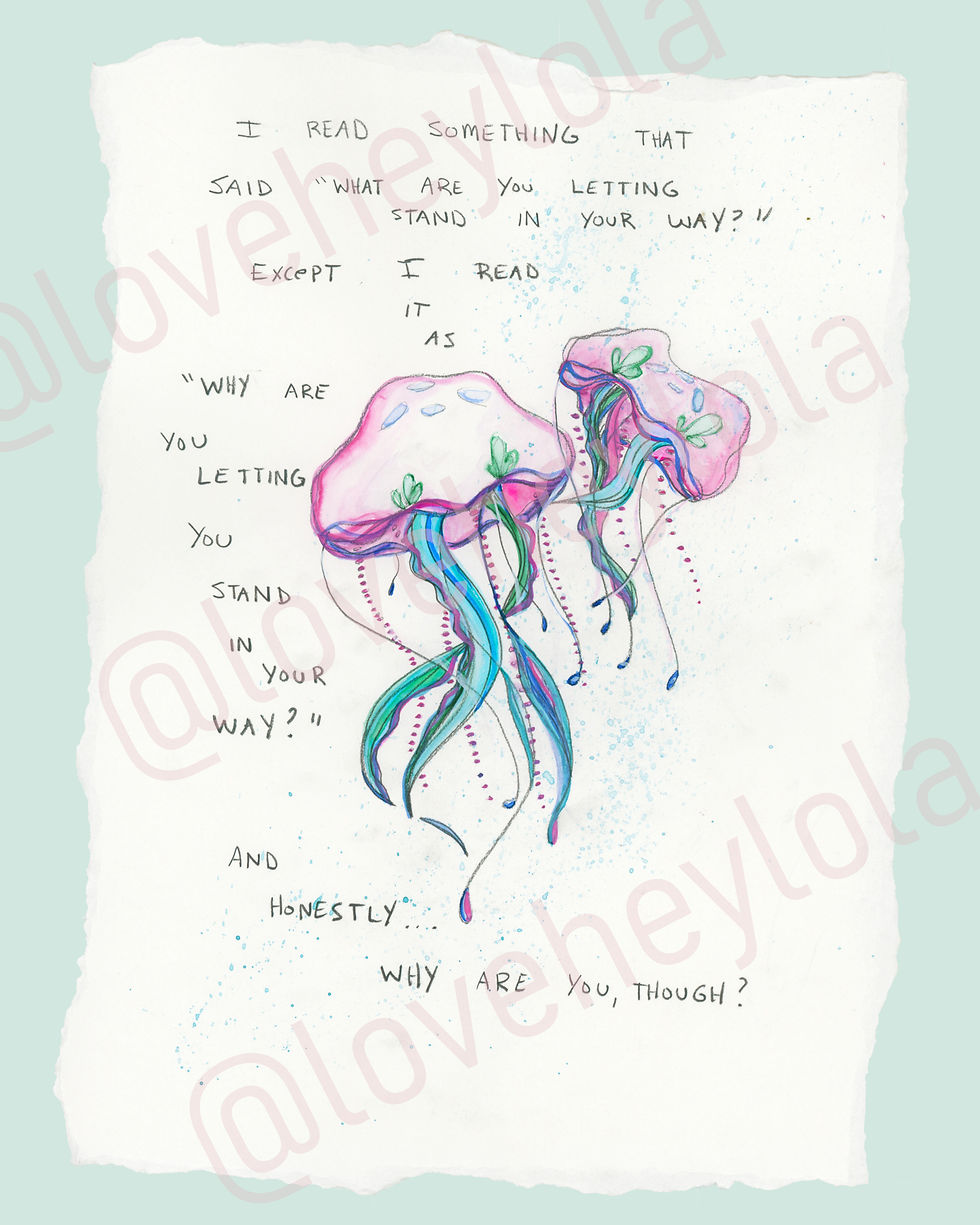 I READ SOMETHING THAT
SAID "WHAT ARE YOU LETTING
STAND IN YOUR WAY?"
EXCEPT I READ
IT
AS
"WHY ARE
YOU
LETTING
YOU
STAND
IN
YOUR
WAY?"
AND
HONESTLY....
WHY ARE YOU, THOUGH?
@loveheylola
@loveheylola
@loveheylola